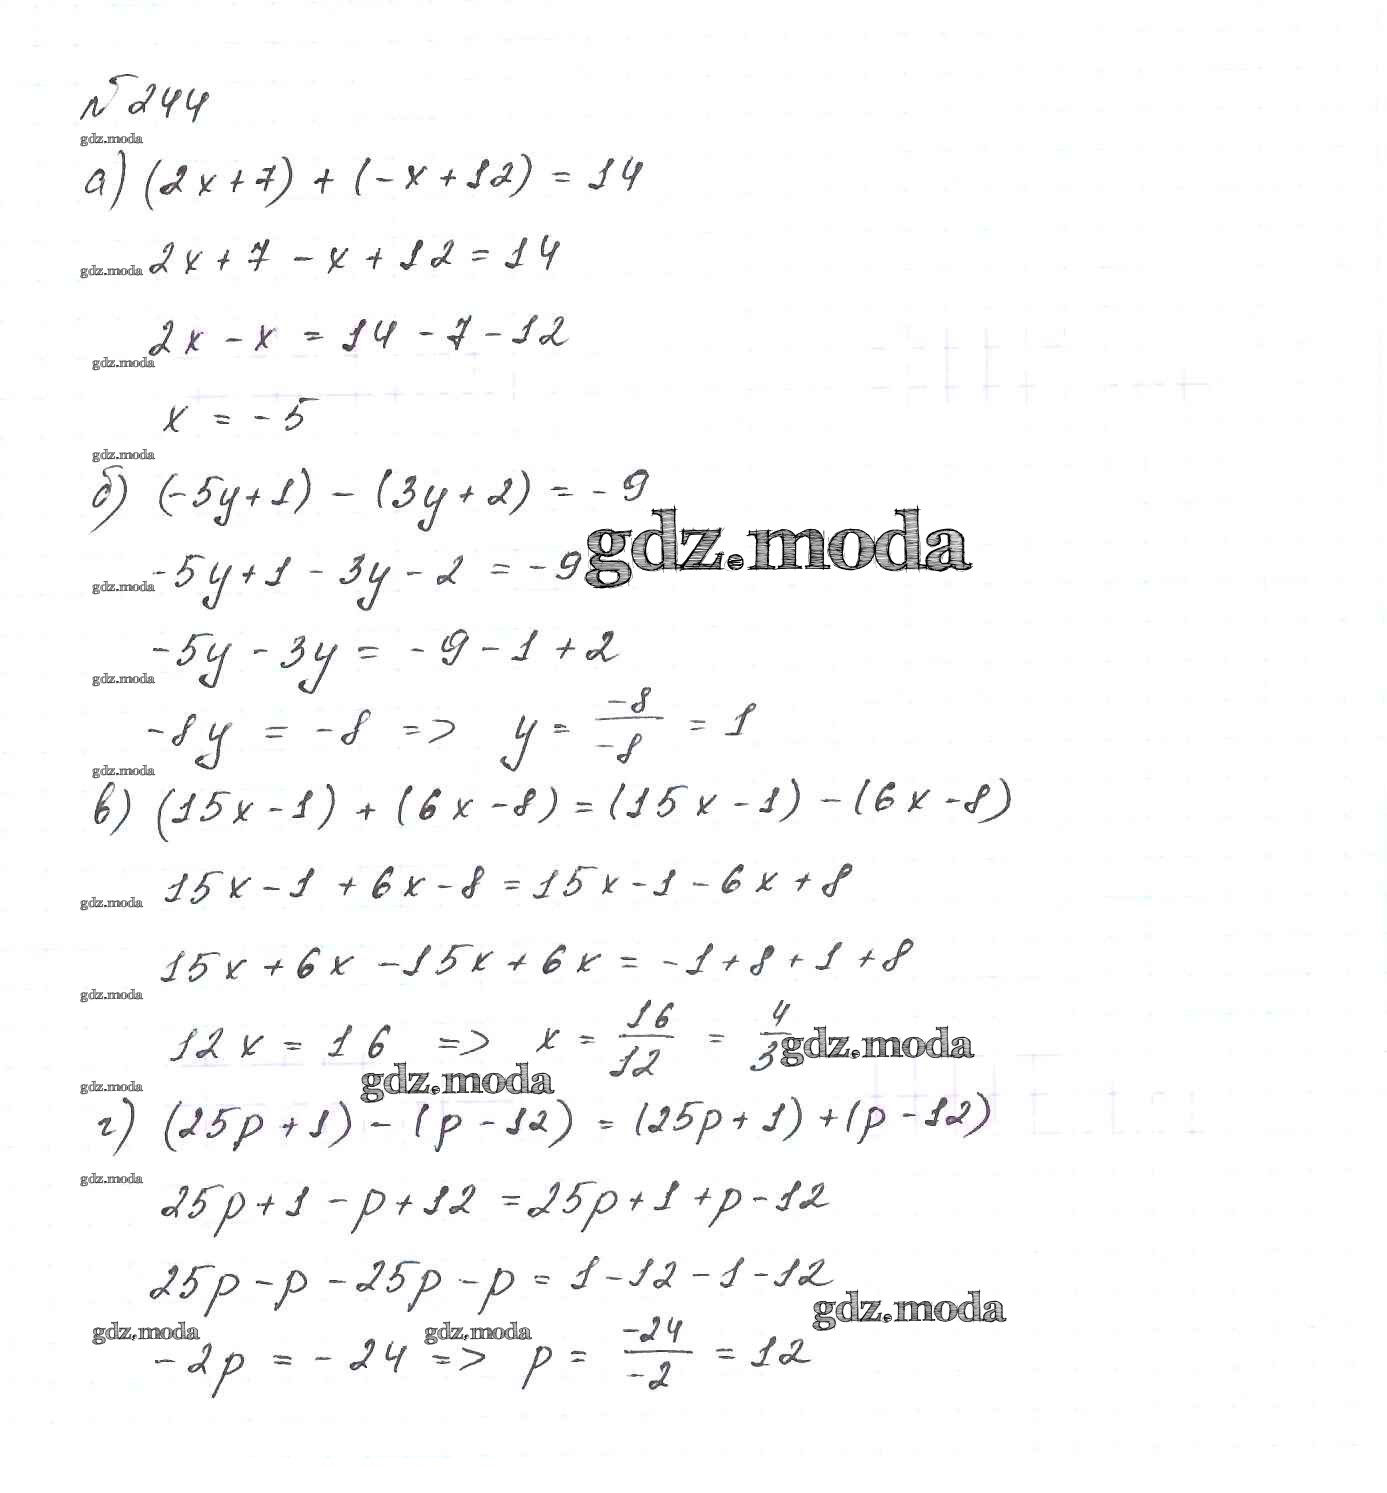 № 244
gdz.moda
а) (2x+7) + (-x+12) = 14
gdz.moda 2x+7 - x + 12 = 14
2x - x = 14 - 7 - 12
gdz.moda
x = -5
gdz.moda
б) (-5y+1) - (3y+2) = -9
gdz.moda
gdz.moda -5y+1 - 3y - 2 = -9
-5y - 3y = -9 - 1 + 2
gdz.moda
-8y = -8 => y = -8/-8 = 1
gdz.moda
в) (15x-1) + (6x-8) = (15x-1) - (6x-8)
gdz.moda 15x-1 + 6x-8 = 15x-1-6x+8
15x+6x-15x+6x = -1+8+1+8
gdz.moda
12x = 16 => x = 16/12 = 4/3 gdz.moda
gdz.moda gdz.moda
г) (25p+1) - (p-12) = (25p+1) + (p-12)
gdz.moda
25p+1-p+12 = 25p+1+p-12
25p-p-25p-p = 1-12-1-12
gdz.moda
gdz.moda gdz.moda
-2p = -24 => p = -24/-2 = 12